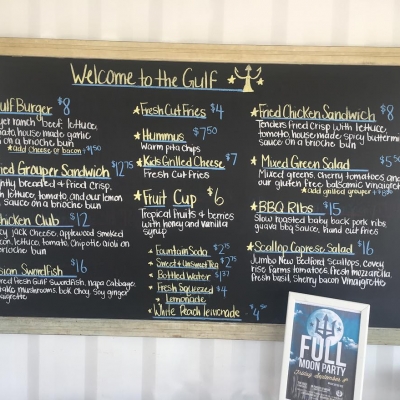 Welcome to the Gulf
Gulf Burger $8
ranch beef, lettuce,
tomato, house made garlic
on a brioche bun
★ add cheese or bacon
Fried Grouper Sandwich $12.75
Lightly breaded & Fried crisp,
lettuce, tomato, and our lemon
sauce on a brioche bun
Chicken Club $12
jack cheese, applewood smoked
bacon, lettuce, tomato chipotle aioli on
brioche bun
Asian Swordfish $16
Fresh Gulf Swordfish, napa cabbage,
shiitake mushrooms, bok choy, soy ginger
vinaigrette
★ Fresh Cut Fries $4
★ Hummus $7.50
Warm pita chips
★ Kids Grilled Cheese $7
Fresh Cut Fries
★ Fruit Cup $6
Tropical Fruits & berries
with honey and vanilla
syrup
★ Fountain Soda $2.75
★ Sweet & Unsweet Tea $2.75
★ Bottled Water
★ Fresh Squeezed $4
★ Lemonade
★ White Peach lemonade $4.50
★ Fried Chicken Sandwich $8
Tenders Fried Crisp with lettuce,
tomato, house made, spicy buttermilk
sauce on a brioche bun
★ Mixed Green Salad $5.50
Mixed greens, cherry tomatoes and
our gluten free balsamic vinaigrette
★ add grilled grouper
★ BBQ Ribs $15
Slow roasted baby back pork ribs,
guava bbq sauce, hand cut fries
★ Scallop Caprese Salad $16
Jumbo New Bedford Scallops, covey
rise farms tomatoes, fresh mozzarella,
fresh basil, sherry bacon vinaigrette
FULL
MOON PARTY